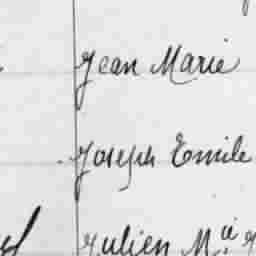 Jean Marie
Joseph Emile
Julien M.ie